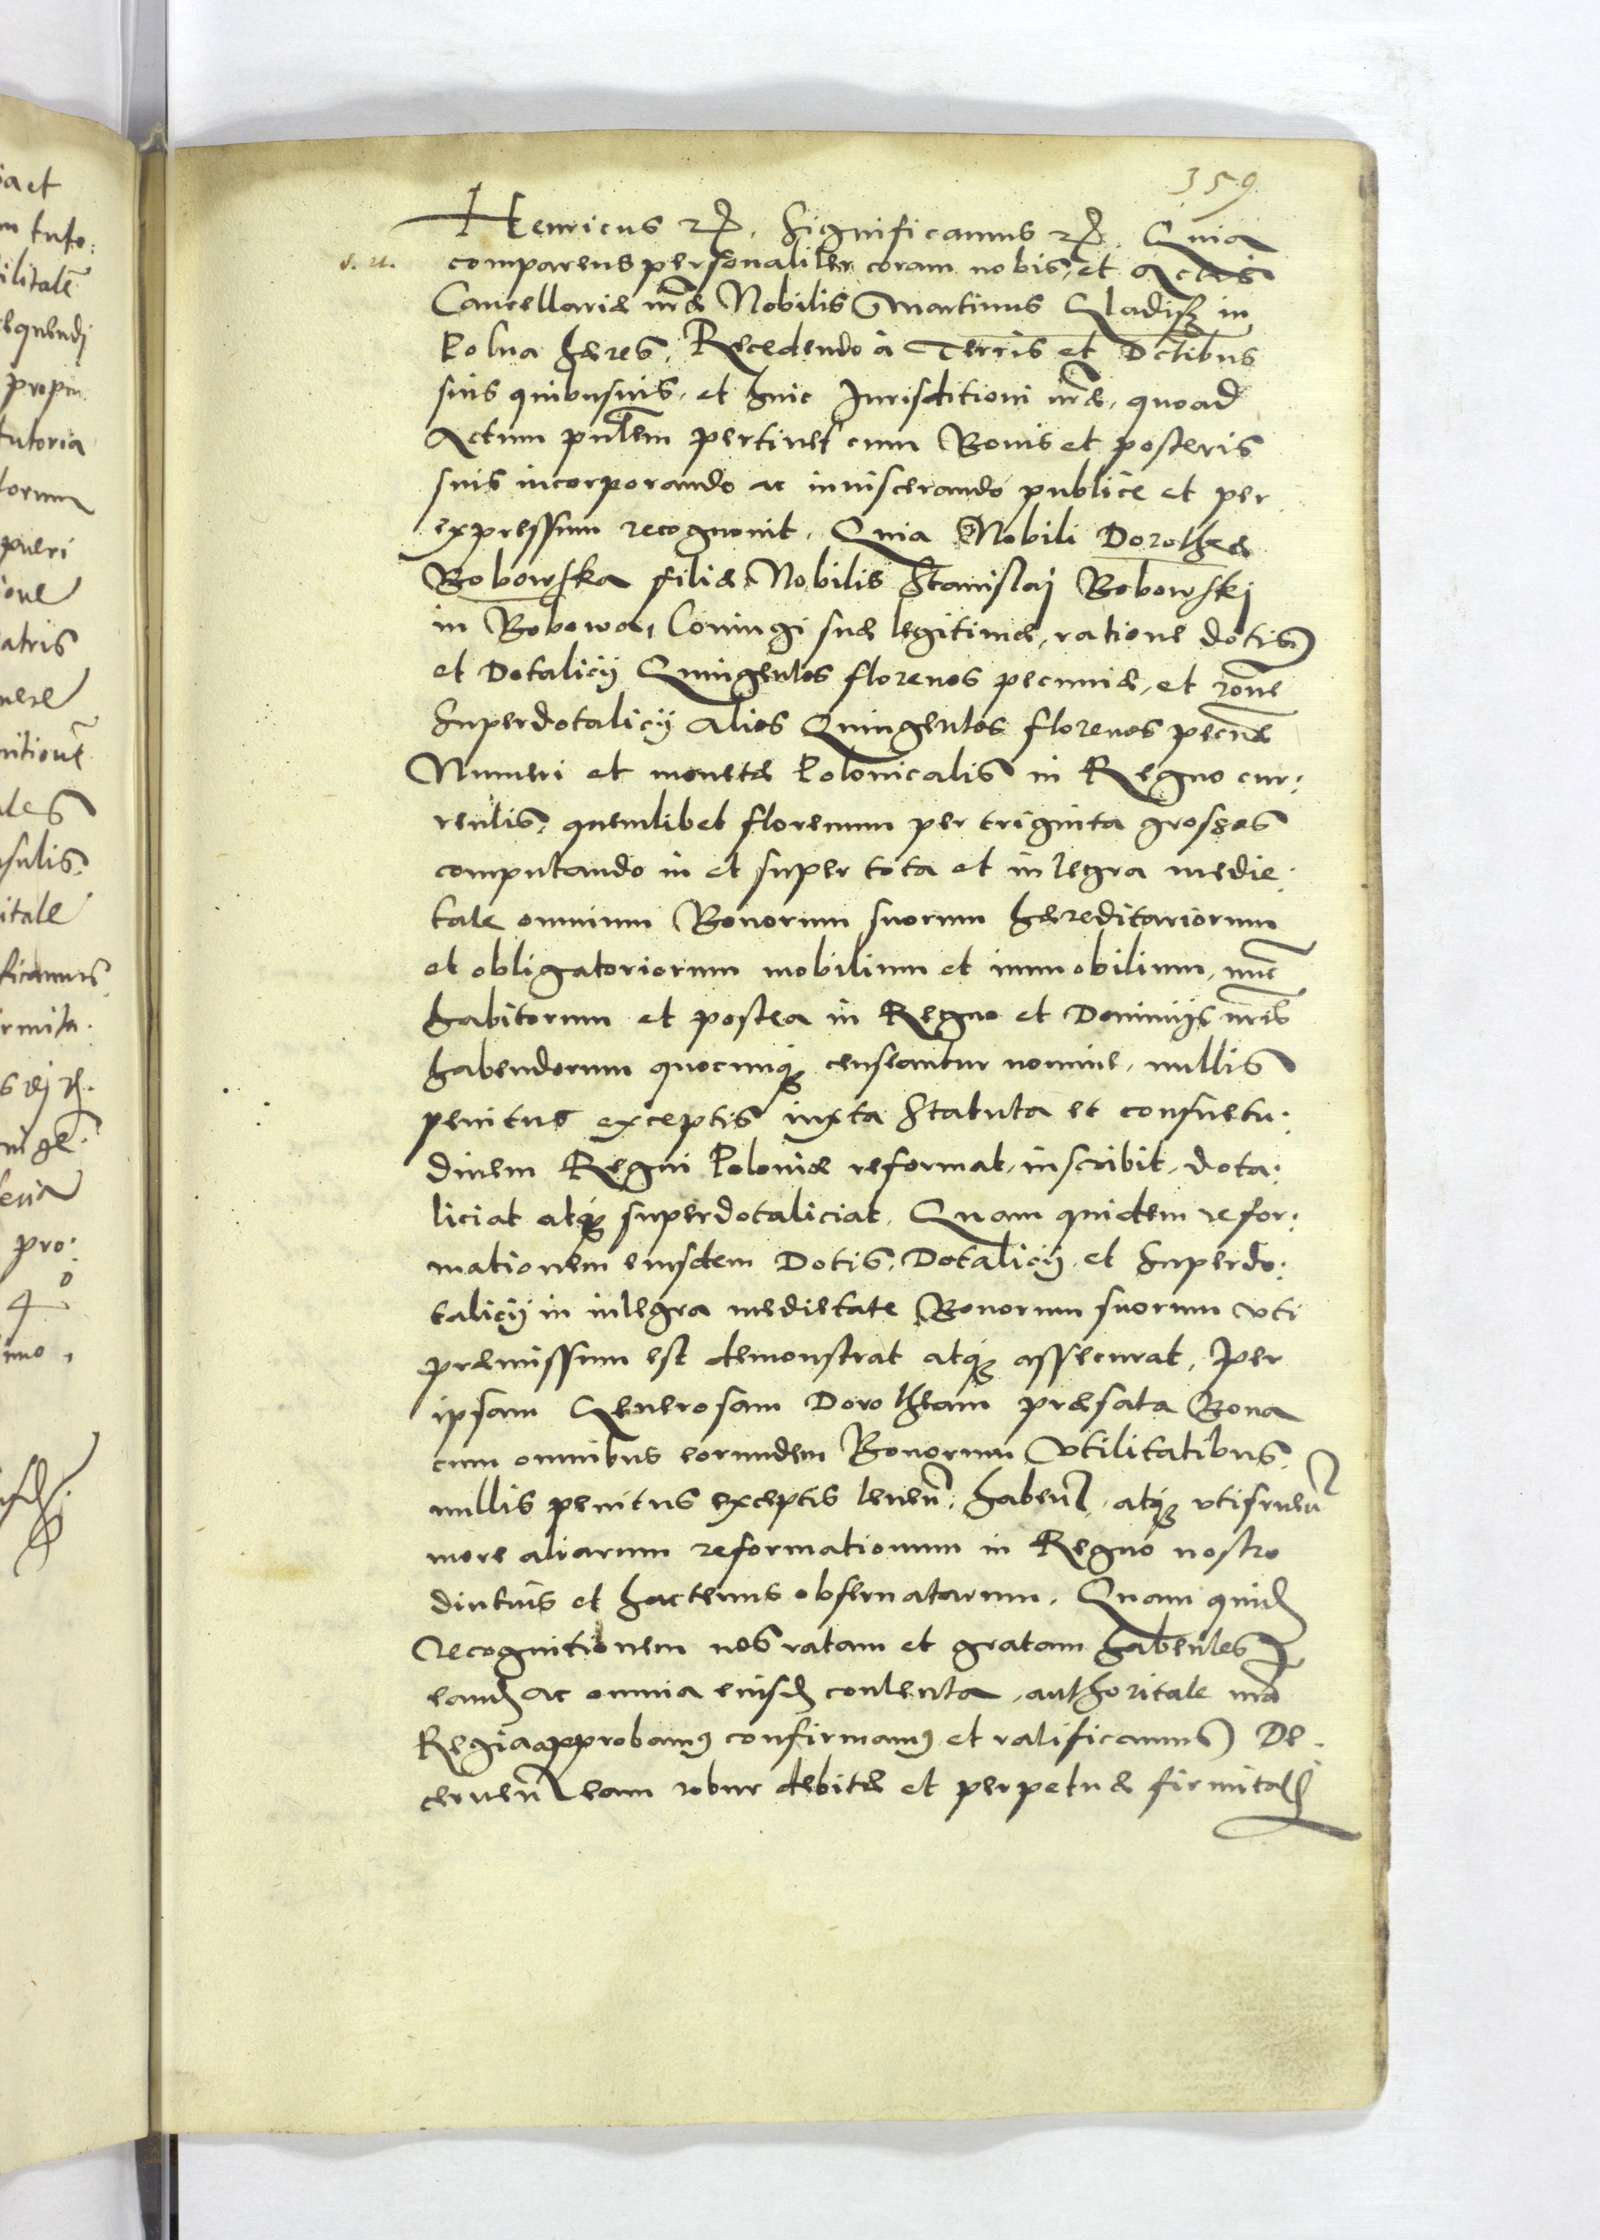 359
Henricus etc. Significamus etc. Quia
comparens personaliter coram nobis, et Actis
Cancellariæ nr̃æ Nobilis Martinus Gladisz in
Polna hæres, Recedendo à Terris et Dc̃tibus
suis quibusuis, et huic Jurisditioni nr̃æ, quoad
Actum pñtem pertinet cum Bonis et posteris
suis incorporando ac inuiscerando publice et per
expressum recognouit, Quia Nobili Dorotheæ
Bobowska filiæ Nobilis Stanislaj Bobowskj
in Bobowa, Coniugi suæ legitimæ, ratione dotis
et Dotalicij Quingentos florenos pecuniæ, et rõne
Superdotalicij Alios Quingentos florenos pecũæ
Numeri et monetæ Polonicalis in Regno cur:
rentis, quemlibet florenum per triginta grosses
computando in et super tota et integra medie:
tate omnium Bonorum suorum hæreditariorum
et obligatoriorum mobilium et immobilium, nũc
habitorum et postea in Regno et Dominijs nr̃is
habendorum quocunq; censeantur nomine, nullis
penitus exceptis iuxta Statuta et consuetu:
dinem Regni Poloniæ reformat, inscribit, dota:
liciat atq; superdotaliciat. Quam quidem refor:
mationem eiusdem Dotis, Dotalicij et Superdo:
talicij in integra medietate Bonorum suorum vti
præmissum est demonstrat atq; assecurat, Per
ipsam Generosam Dorotheam præfata Bona
cum omnibus eorundem Bonorum Vtilitatibus,
nullis penitus exceptis tenen̄, haben̄, atq; vtifruen̄
more aliarum reformationum in Regno nostro
diutius et hactenus obseruatarum. Quam quid
recognitionem nos ratam et gratam habentes
eand ac omnia eiusd contenta, authoritate nr̃a
Regia approbam9 confirmam9 et ratificamus De:
cernen̄ eam robur debitæ et perpetuæ firmitat